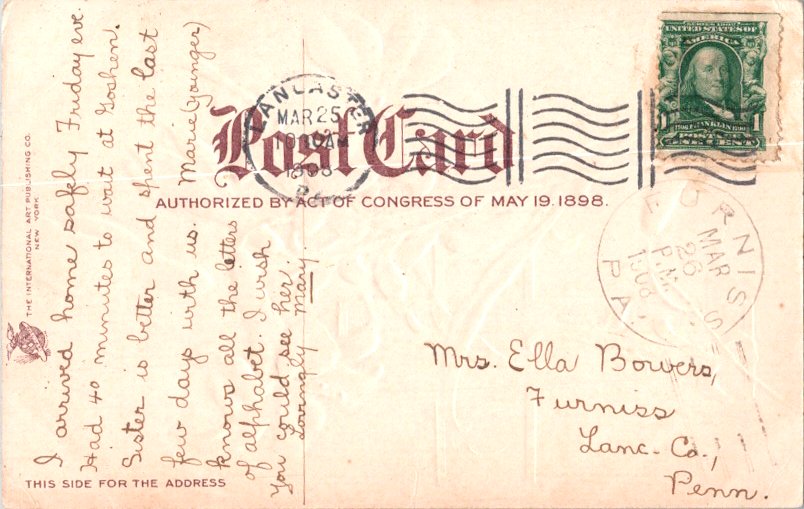 THE INTERNATIONAL ART PUBLISHING CO.
NEW YORK
I arrived home safely Friday eve.
Had 40 minutes to wait at Goshen.
Sister is better and spent the last
few days with us. Marie (younger)
knows all the letters
of alphabet. I wish
you could see her.
Lovingly Mary
Post Card
AUTHORIZED BY ACT OF CONGRESS OF MAY 19. 1898.
LANCASTER
MAR 25
AM
1908
PA
UNITED STATES OF
AMERICA
1 FRANKLIN 1
POSTAGE
ONE CENT
FURNISS
MAR
26
P.M.
1908
PA.
Mrs. Ella Bowers,
Furniss
Lanc. Co.,
Penn.
THIS SIDE FOR THE ADDRESS